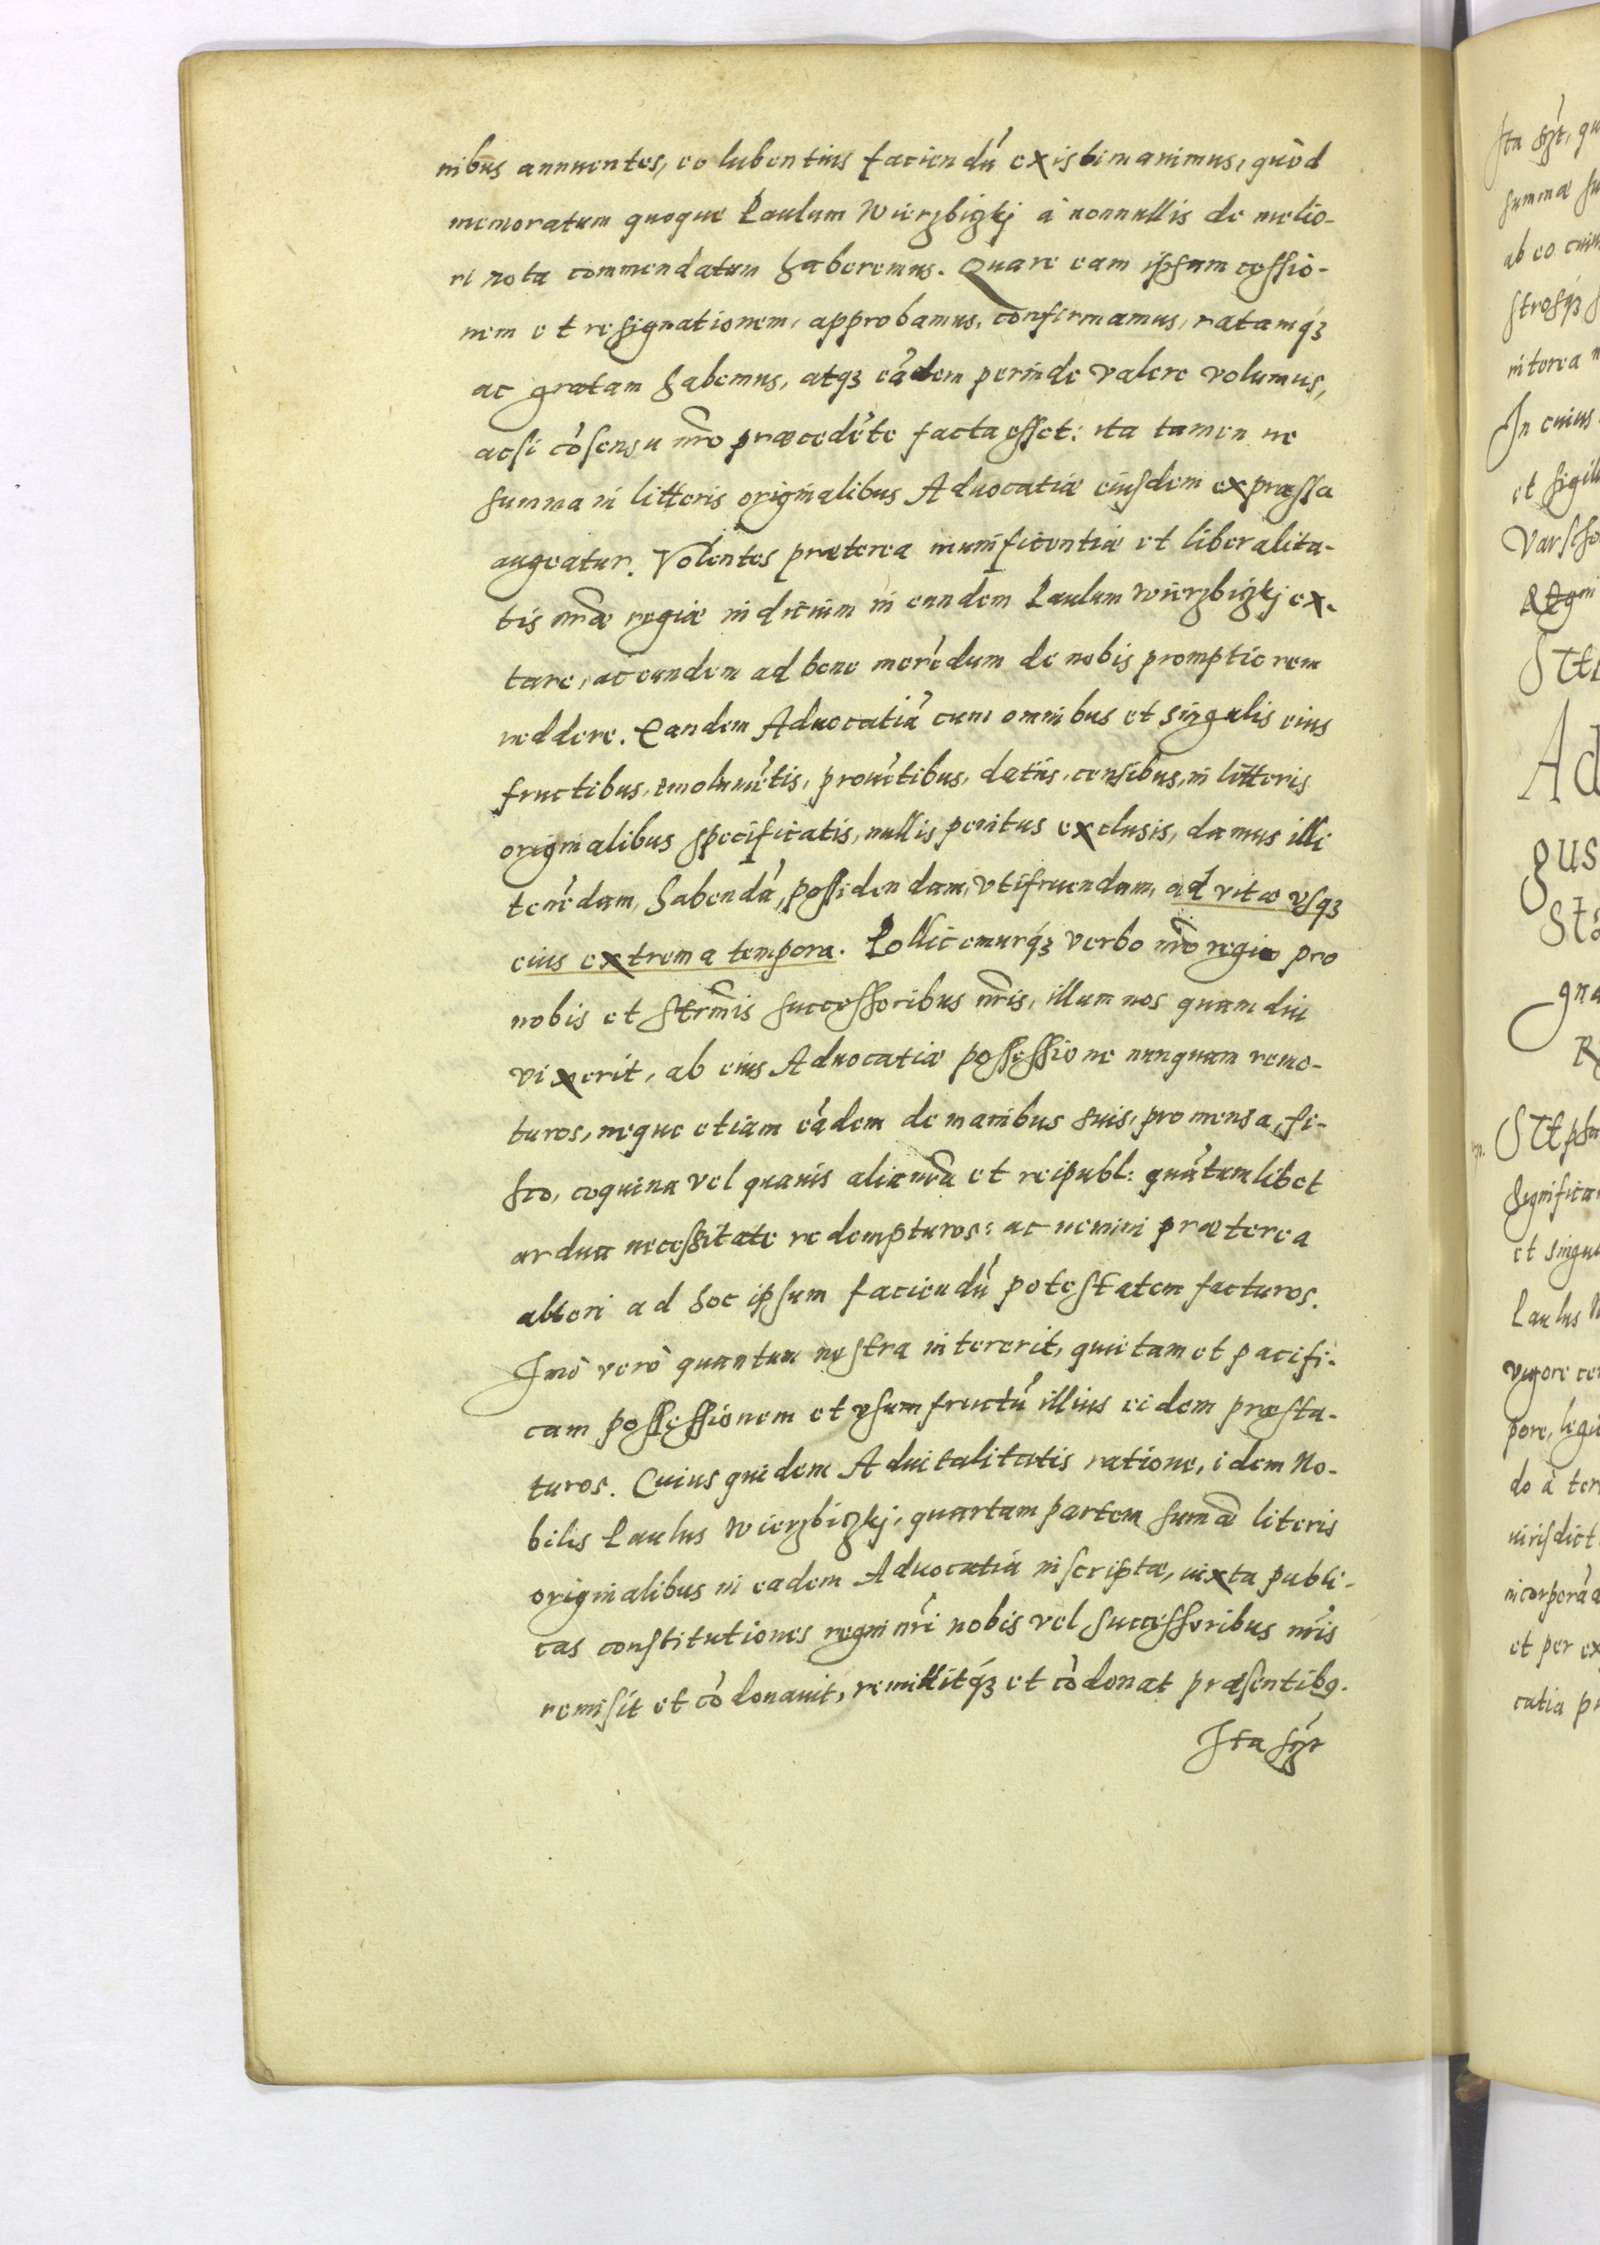 nibus annuentes, eo lubentius faciendū existimauimus, quòd
memoratum quoque Paulum Wierzbizkj à nonnullis de melio-
ri nota commendatum haberemus. Quare eam ipsam cessio-
nem et resignationem, approbamus, confirmamus, ratamq́ꝫ
ac gratam habemus, atqꝫ eādem perinde valere volumus,
acsi cōsensu nr̃o præcedēte facta esset: ita tamen ne
summa in litteris originalibus Aduocatiæ eiusdem expressa
augeatur. Volentes præterea munificentiæ et liberalita-
tis nr̃æ regiæ indicium in eundem Paulum Wierzbizkj ex-
tare, ac eundem ad bene merēdum de nobis promptiorem
reddere. Eandem Aduocatiā cum omnibus et singulis eius
fructibus, emolumētis, prouētibus, datiis, censibus, in litteris
originalibus specificatis, nullis penitus exclusis, damus illi
tenēdam, habendā, possidendam, vtifruendam, ad vitæ vsqꝫ
eius extrema tempora. Pollicemurq́ꝫ verbo nr̃o regio pro
nobis et Serm̃is successoribus nr̃is, illum nos quam diu
vixerit, ab eius Aduocatiæ possessione nunquam remo-
turos, neque etiam eādem de manibus suis, pro mensa, fi-
sco, coquina vel quauis alia nr̃a et reipubl: quātumlibet
ardua necessitate redempturos: ac nemini præterea
alteri ad hoc ipsum faciendū potestatem facturos.
Imò verò quantum nostra intererit, quietam et pacifi-
cam possessionem et vsumfructū illius eidem præsta-
turos. Cuius quidem Aduitalitatis ratione, idem No-
bilis Paulus Wierzbizkj, quartam partem sum̃æ literis
originalibus in eadem Aduocatia inscriptæ, iuxta publi-
cas constitutiones regni nr̃i nobis vel successoribus nr̃is
remisit et cōdonauit, remittitq́ꝫ et cōdonat præsentibꝰ.
Ita
Ita
summæ
ab eo
interea
In cuius
et sigill
Varscho
Regni
Ad
gus
gna
significa
et singu
Paulus
vigore
pore, legi
do à ter
iurisdict
incorporā
et per ex
catia